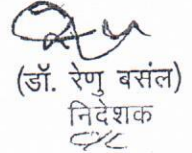 (डॉ. रेणु बसंल)
निदेशक